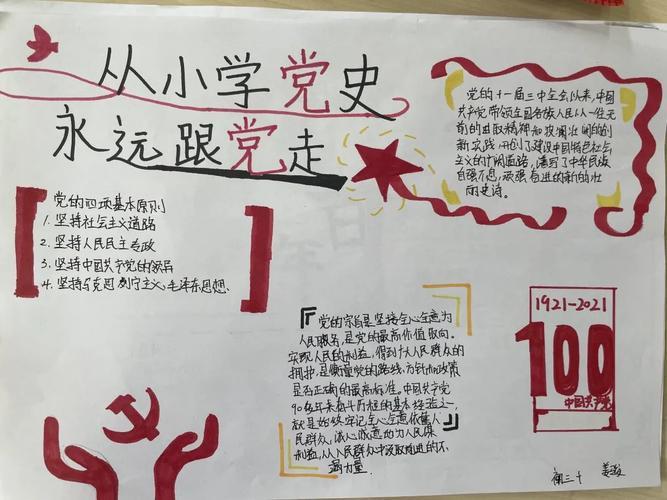 从小学党史
永远跟党走
党的十一届三中全会以来,中国
共产党带领全国各族人民以一往无
前的进取精神和波澜壮阔的创
新实践,开创了建设中国特色社会
主义的广阔道路,谱写了中华民族
自强不息、顽强奋进的新的壮
丽史诗。
党的四项基本原则
1. 坚持社会主义道路
2. 坚持人民民主专政
3. 坚持中国共产党的领导
4. 坚持马克思列宁主义、毛泽东思想.
党的宗旨是坚持全心全意为
人民服务,是党的最高价值取向。
实现人民的利益,得到广大人民群众的
拥护,是衡量党的路线、方针和政策
是否正确的最高标准。中国共产党
90多年来奋斗历程的基本经验之一,
就是始终牢记全心全意依靠人
民群众,诚心诚意地为人民谋
利益,从人民群众中汲取前进的不
竭力量.
1921-2021
100
中国共产党
初三十